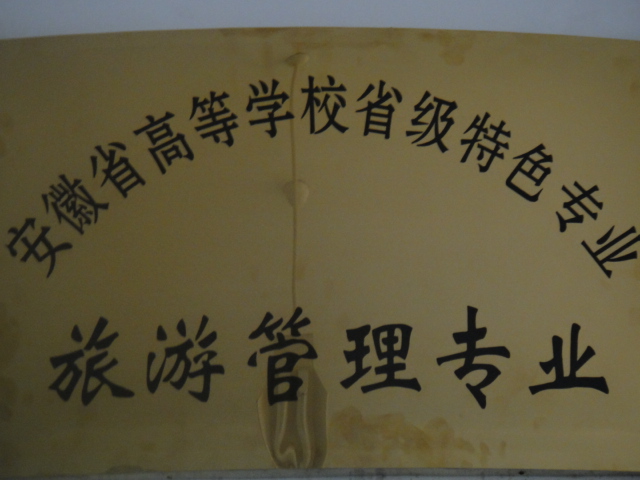 安徽省高等学校省级特色专业
旅游管理专业